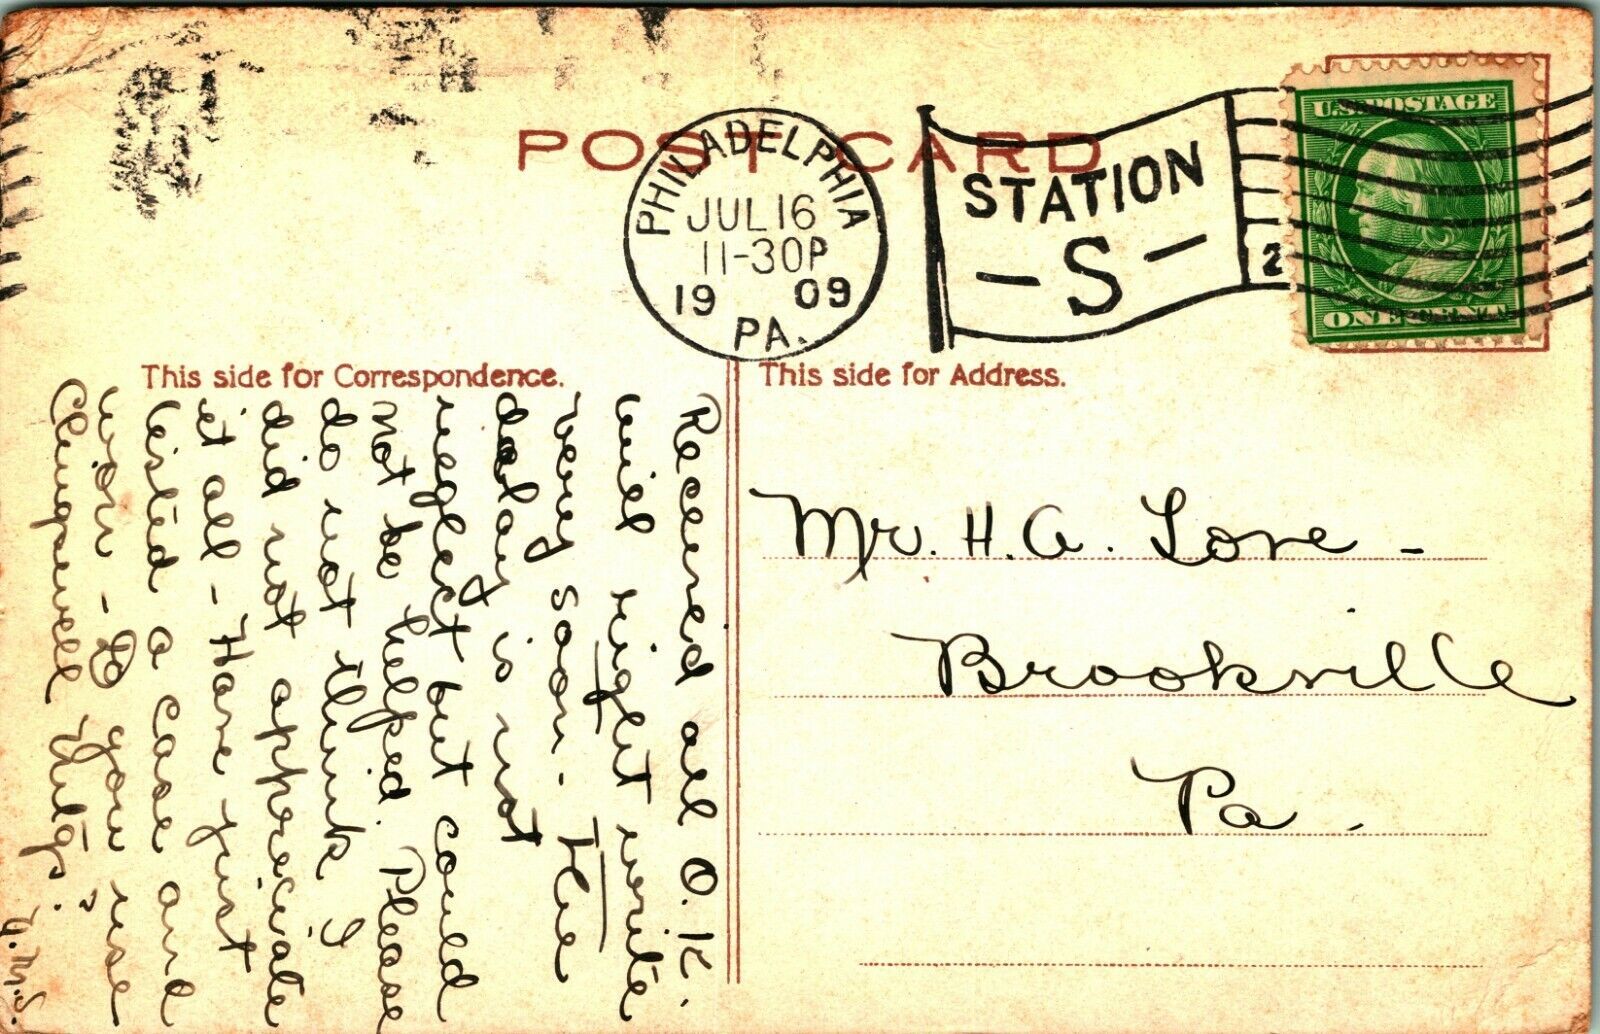 POST CARD
PHILADELPHIA
JUL 16
11-30P
1909
PA.
STATION
- S -
2
U.S. POSTAGE
ONE CENT
This side for Correspondence.
This side for Address.
Received all O.K.
will right write
very soon - The
delay is not
neglect but could
not be helped. Please
do not think I
did not appreciate
it all - Have just
listed a case and
won - Do you use
Chingswell things?
Mr. H. A. Love -
Brookville
Pa.